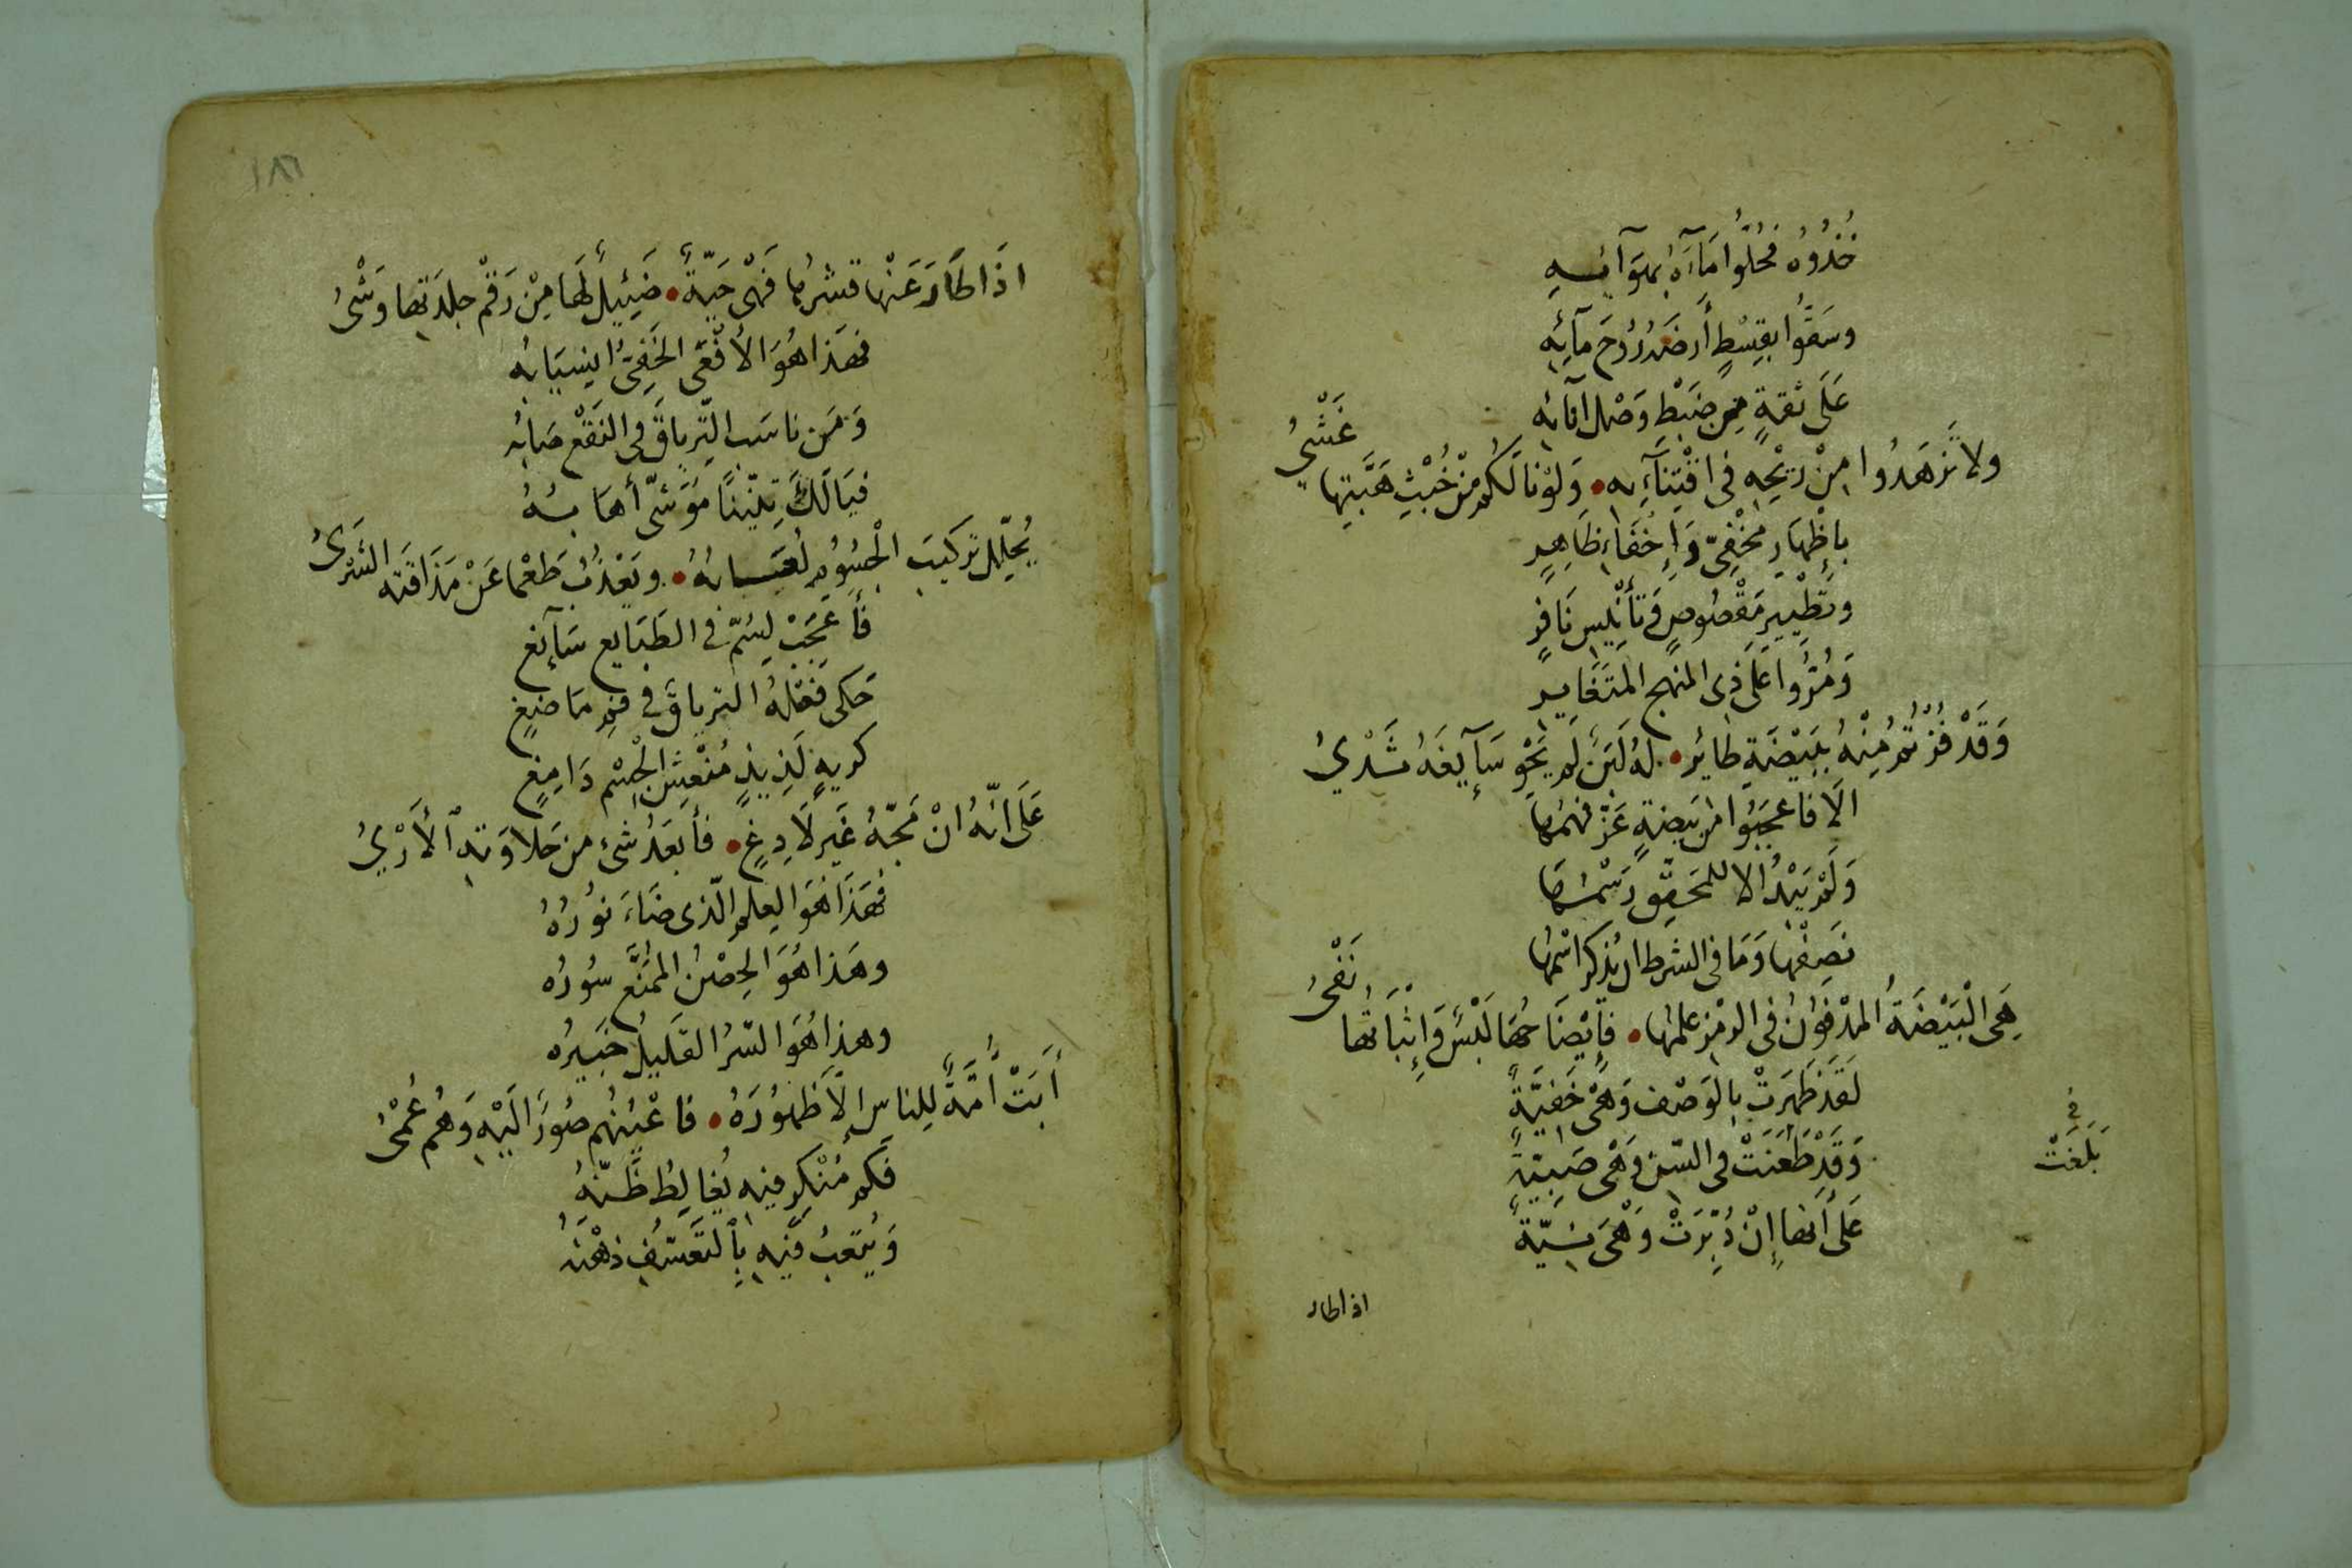 خُذُوُه فَحُلُّوا مَآءَهُ بهَوَآئِهِ
وسَقُّوا بقِسْطٍ أَرضَهُ رُوحَ مآئِهِ
عَلَى ثقةٍ مِن ضَبْط وَصْل انآئِهِ
ولا تَزهَدُوا مِنْ رِيْحِهِ فى اقْتِنَآئِه • وَلَوْ نالَكُم مِنْ خُبْثِ هَبَّتِها غَشْيُ
بإظْهَارِ مَخْفِىّ وَإِخفَاءِ ظَاهِرٍ
وتَطْيِيرِ مَقْصُوصٍ وَتأنْيِس نَافِرٍ
وَمُرُّوا عَلَى ذى المنهج المتَغَايِر
وَقَدْ فُزْتُم مِنْهُ بِبَيْضَةِ طائِر • لهُ لَبَنٌ لَم يَحْوِ سَآيغَهُ ثَدْيُ
الَا فاعجَبُوا من بَيضةٍ عَزّ فهمُهَا
وَلَم يَبْدُ الا للمحَقِّقِ رَسْمُهَا
نصَفْتها وَمَا فى الشرط ان يُذكر اسْمُهَا
هِى الْبَيْضَةُ المدْفون فى الرمْز علمُهَا • فإِيْضَاحُهَا لَبْسٌ وَإِثْبَاتُها نَفْىُ
لَقَدْ ظَهَرتْ بالوَصْف وَهْىَ خَفيَّةٌ
وَقَدْ طَعَنَتْ فى السّن وَهْى صَبِيّةٌ
بَلَغَتْ
عَلَى أَنها إِنْ دُبِّرَتْ وَهْىَ
اذا طار
١٨٦
اذَا طَارَ عَنْها قشرُها فَهْىَ حَيّةٌ • ضَئِيلٌ لَهَا مِنْ رَقْم جِلدَتِها وَشْىُ
فهَذا هُوَ الأَفْعَى الخَفِىُّ انسِيَابُه
وَمَن ناسَب التّرِياقَ فى النَفْع صَابُه
فيَالَكَ تِنّيْنًا مُوَشًّى أهَابُهُ
يُحَلِّل تركيبَ الْجسُومِ لُعَابُهُ • ويَعْذُبُ طَعْما عَنْ مَذَاقَته الشَرْىُ
فأَعْجَبْ لِسُمّ فى الطَبَايِع سَآئغ
حَكى فعْلهُ الترياقَ فى فمِ مَاضغٍ
كريهٍ لَذِيذٍ مُنْعِشِ الْجِسْم دَامِغٍ
عَلَى انَّهُ انْ مَجّهُ غَير لَادِغٍ • فأبعَدُ شئ من حَلاوَته الأَرْيُ
فهَذَا هُوَ العِلم الّذى ضَاءَ نوُرُهُ
وهَذا هُوَ الحِصْنُ الممَنَّع سُورُه
وهذا هُوَ السّرُ القَليلُ خَبِيرُه
أَبَتْ أُمَّةٌ للِناس إِلَّا ظهُورَهُ • فاعْيُنُهم صُورٌ الَيْهِ وَهُم عُمْىُ
فَكم مُنْكِرٍ فيه يُغالِطُ ظَنّهُ
وَيُتعِبُ فيْهِ بِالتَعَسُّفِ ذهْنَهُ